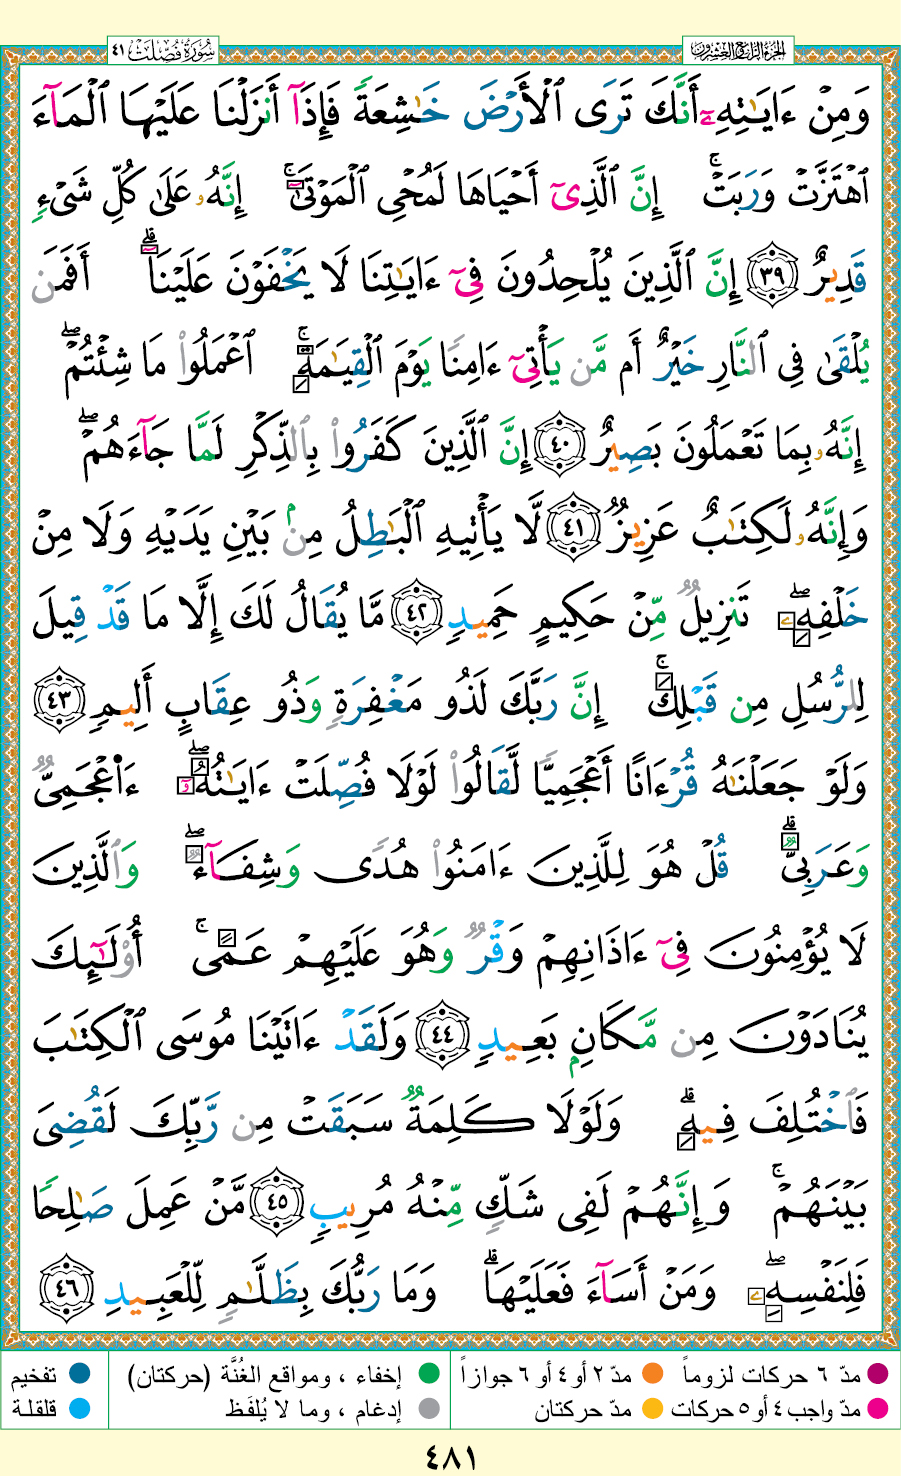 سُورَةُ فُصِّلَتْ ٤١
الجزء الرابع والعشرون
وَمِنْ ءَايَـٰتِهِۦٓ أَنَّكَ تَرَى ٱلْأَرْضَ خَـٰشِعَةً فَإِذَآ أَنزَلْنَا عَلَيْهَا ٱلْمَآءَ
ٱهْتَزَّتْ وَرَبَتْ ۚ إِنَّ ٱلَّذِىٓ أَحْيَاهَا لَمُحْىِ ٱلْمَوْتَىٰٓ ۚ إِنَّهُۥ عَلَىٰ كُلِّ شَىْءٍ
قَدِيرٌ ٣٩ إِنَّ ٱلَّذِينَ يُلْحِدُونَ فِىٓ ءَايَـٰتِنَا لَا يَخْفَوْنَ عَلَيْنَآ ۗ أَفَمَن
يُلْقَىٰ فِى ٱلنَّارِ خَيْرٌ أَم مَّن يَأْتِىٓ ءَامِنًا يَوْمَ ٱلْقِيَـٰمَةِ ۚ ٱعْمَلُوا۟ مَا شِئْتُمْ ۖ
إِنَّهُۥ بِمَا تَعْمَلُونَ بَصِيرٌ ٤٠ إِنَّ ٱلَّذِينَ كَفَرُوا۟ بِٱلذِّكْرِ لَمَّا جَآءَهُمْ ۖ
وَإِنَّهُۥ لَكِتَـٰبٌ عَزِيزٌ ٤١ لَّا يَأْتِيهِ ٱلْبَـٰطِلُ مِنۢ بَيْنِ يَدَيْهِ وَلَا مِنْ
خَلْفِهِۦ ۖ تَنزِيلٌ مِّنْ حَكِيمٍ حَمِيدٍ ٤٢ مَّا يُقَالُ لَكَ إِلَّا مَا قَدْ قِيلَ
لِلرُّسُلِ مِن قَبْلِكَ ۚ إِنَّ رَبَّكَ لَذُو مَغْفِرَةٍ وَذُو عِقَابٍ أَلِيمٍ ٤٣
وَلَوْ جَعَلْنَـٰهُ قُرْءَانًا أَعْجَمِيًّا لَّقَالُوا۟ لَوْلَا فُصِّلَتْ ءَايَـٰتُهُۥٓ ۖ ءَا۬عْجَمِىٌّ
وَعَرَبِىٌّ ۗ قُلْ هُوَ لِلَّذِينَ ءَامَنُوا۟ هُدًى وَشِفَآءٌ ۖ وَٱلَّذِينَ
لَا يُؤْمِنُونَ فِىٓ ءَاذَانِهِمْ وَقْرٌ وَهُوَ عَلَيْهِمْ عَمًى ۚ أُو۟لَـٰٓئِكَ
يُنَادَوْنَ مِن مَّكَانٍۭ بَعِيدٍ ٤٤ وَلَقَدْ ءَاتَيْنَا مُوسَى ٱلْكِتَـٰبَ
فَٱخْتُلِفَ فِيهِ ۗ وَلَوْلَا كَلِمَةٌ سَبَقَتْ مِن رَّبِّكَ لَقُضِىَ
بَيْنَهُمْ ۚ وَإِنَّهُمْ لَفِى شَكٍّ مِّنْهُ مُرِيبٍ ٤٥ مَّنْ عَمِلَ صَـٰلِحًا
فَلِنَفْسِهِۦ ۖ وَمَنْ أَسَآءَ فَعَلَيْهَا ۗ وَمَا رَبُّكَ بِظَلَّـٰمٍ لِّلْعَبِيدِ ٤٦
مدّ ٦ حركات لزوماً مدّ ٢ أو ٤ أو ٦ جوازاً إخفاء ، ومواقع الغُنَّة (حركتان) تفخيم
مدّ واجب ٤ أو ٥ حركات مدّ حركتان إدغام ، وما لا يُلفَظ قلقلة
٤٨١